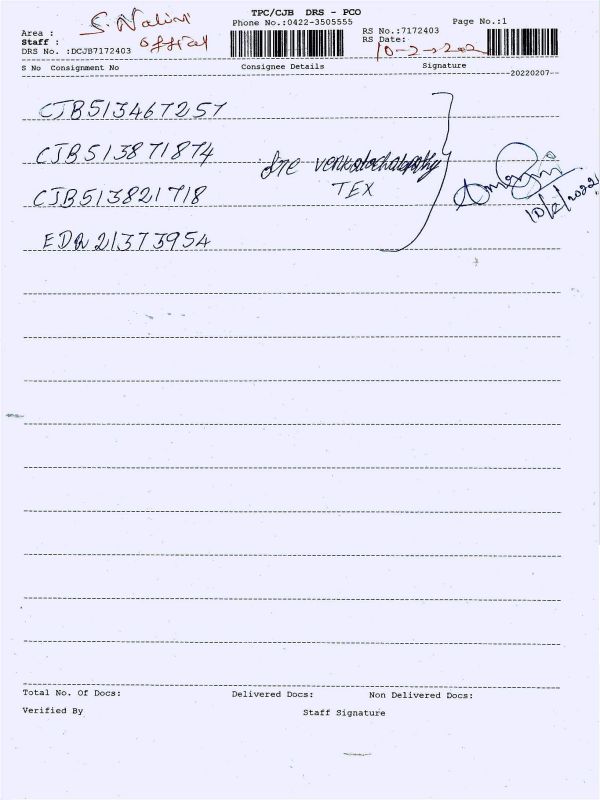 TPC/CJB DRS - PCO
Phone No.:0422-3505555
Page No.:1
S. Nalini
Area :
Staff : official
DRS No. :DCJB7172403
RS No.:7172403
RS Date:
10-2-2022
S No Consignment No Consignee Details Signature
20220207
CJB513467257
CJB513871874
CJB513821718
EDR21373954
Sre venkatachalapathy
TEX
10/2/2022
Total No. Of Docs: Delivered Docs: Non Delivered Docs:
Verified By Staff Signature